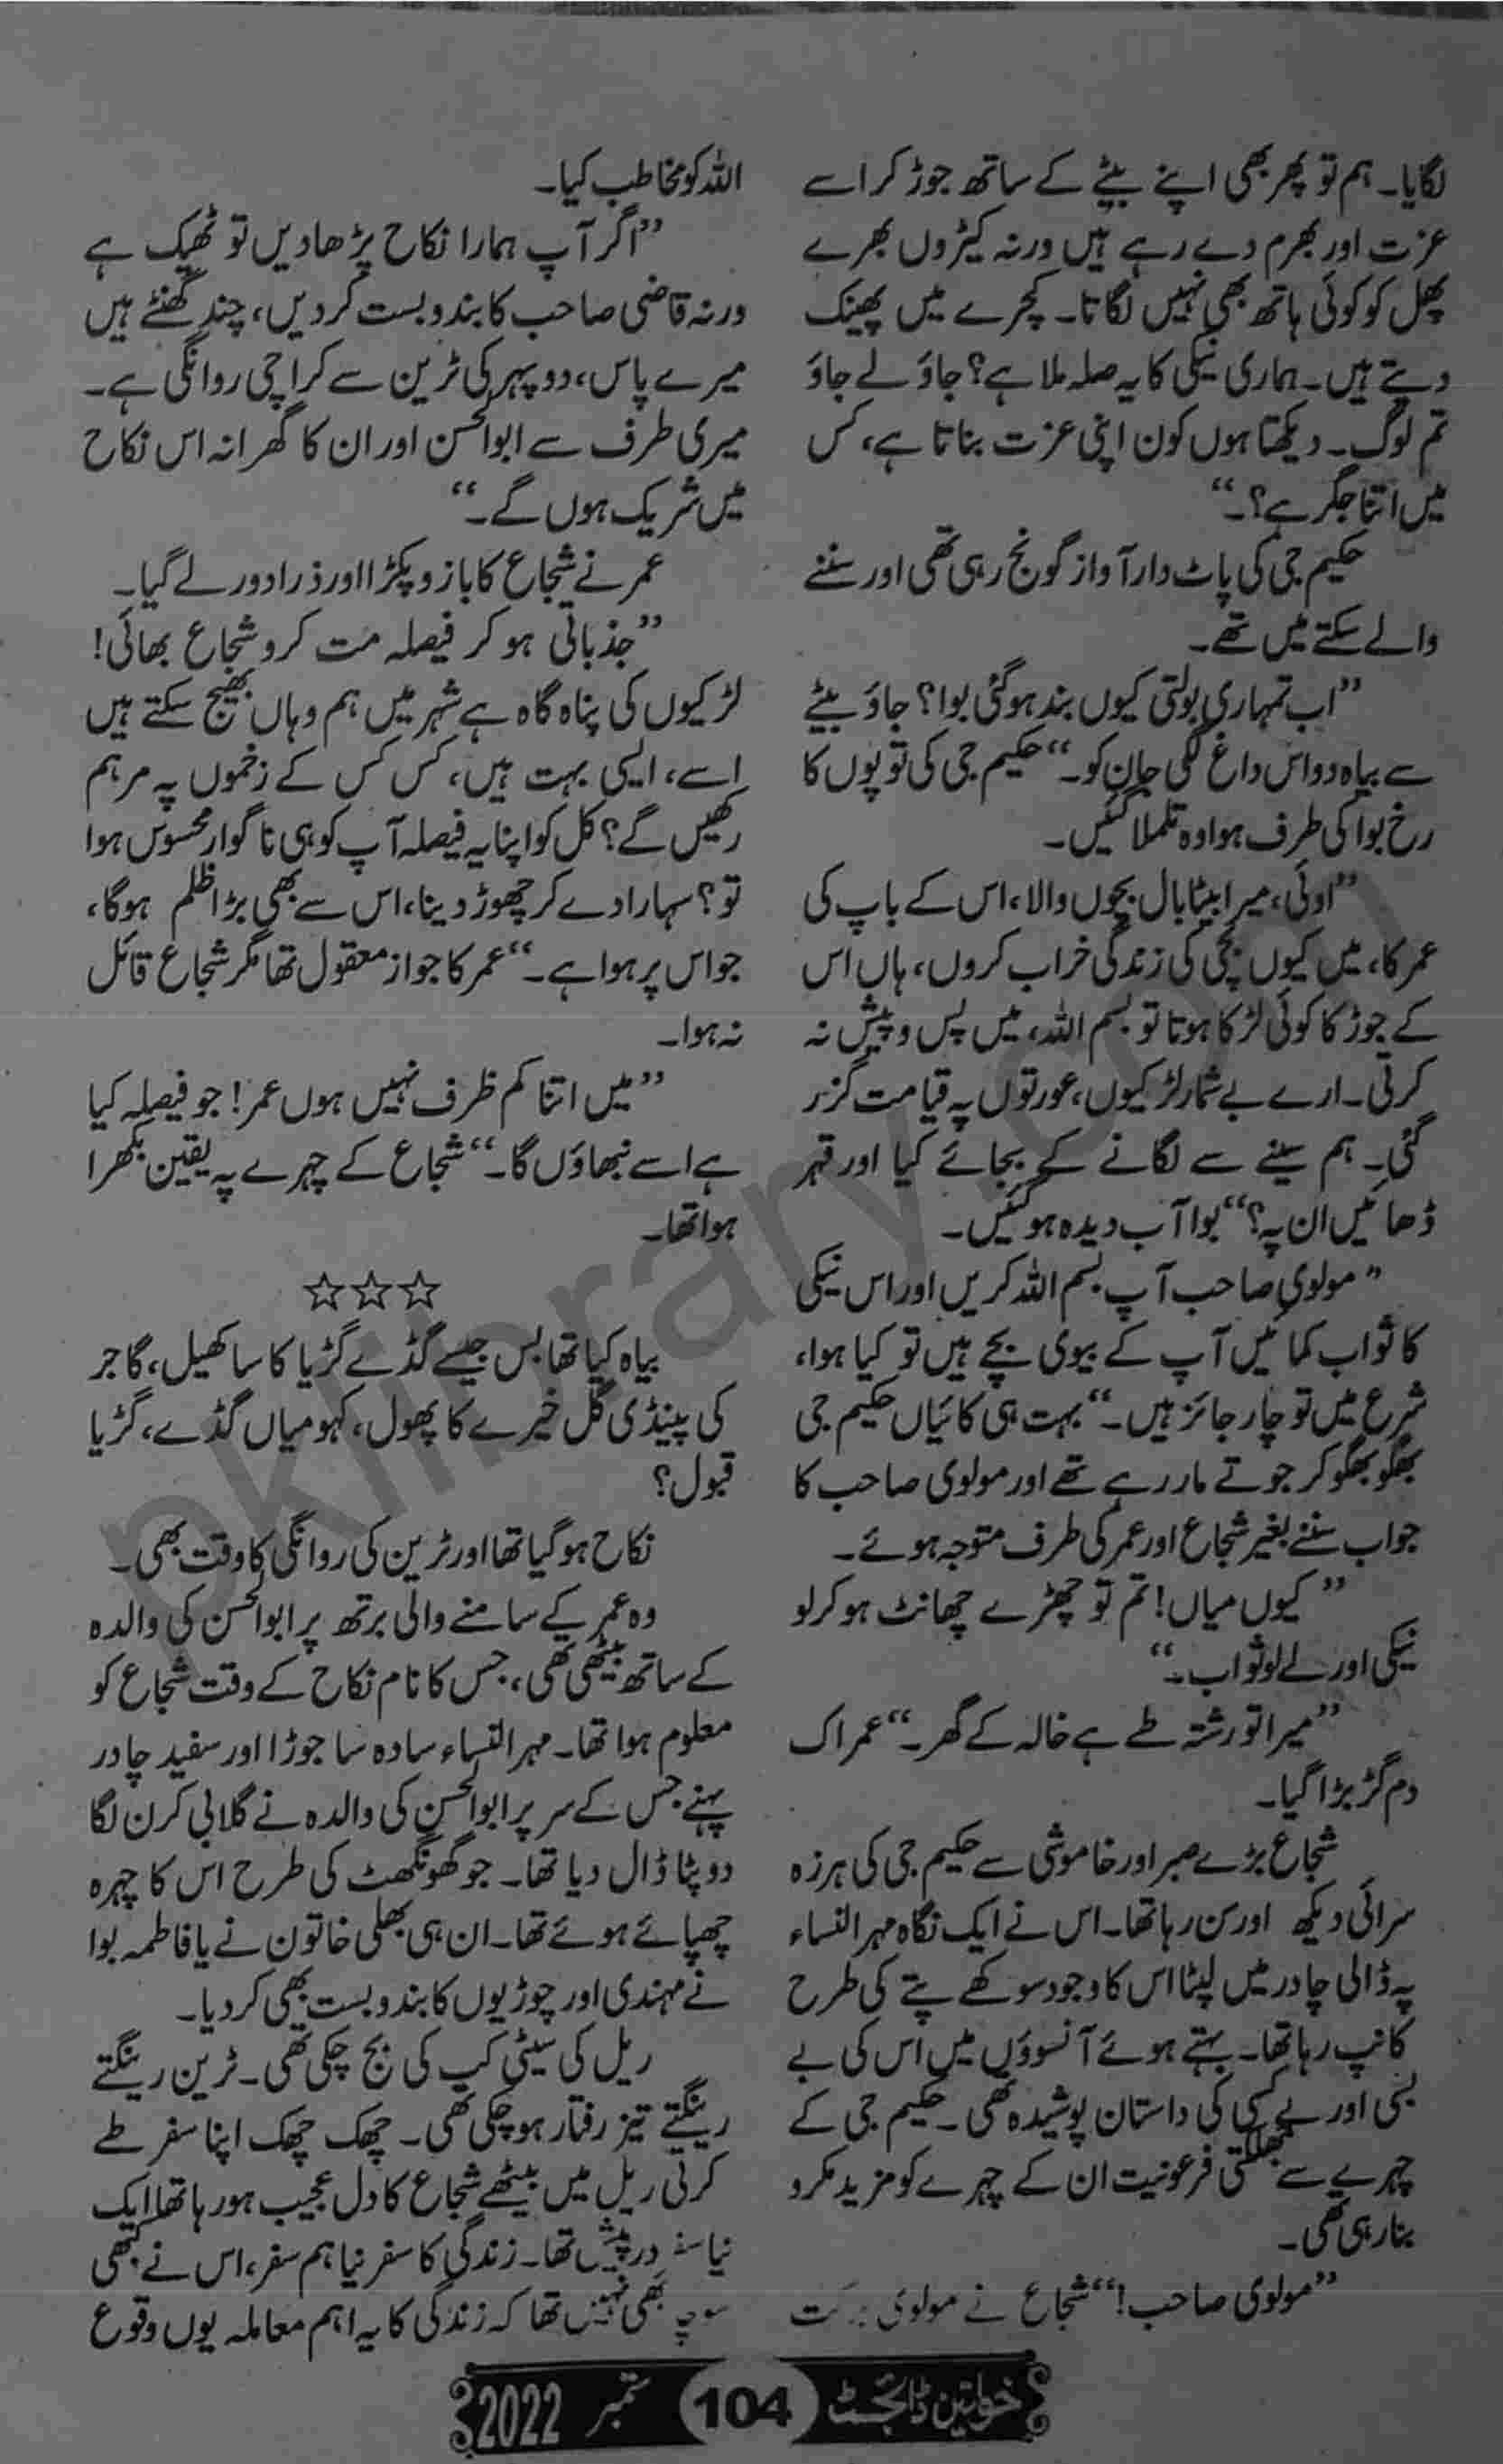 لگایا۔ ہم تو پھر بھی اپنے بیٹے کے ساتھ جوڑ کر اسے
عزت اور بھرم دے رہے ہیں ورنہ کیڑوں بھرے
پھل کو کوئی ہاتھ بھی نہیں لگاتا۔ کچرے میں پھینک
دیتے ہیں۔ ہماری نیکی کا یہ صلہ ملا ہے؟ جاؤ لے جاؤ
تم لوگ۔ دیکھتا ہوں کون اپنی عزت بناتا ہے، کس
میں اتنا جگر ہے؟۔“
حکیم جی کی پاٹ دار آواز گونج رہی تھی اور سننے
والے سکتے میں تھے۔
”اب تمہاری بولتی کیوں بند ہوگئی بوا؟ جاؤ بیٹے
سے بیاہ دو اس داغ لگی جان کو۔“ حکیم جی کی توپوں کا
رخ بوا کی طرف ہوا وہ تلملا گئیں۔
”اوئی، میرا بیٹا بال بچوں والا، اس کے باپ کی
عمر کا، میں کیوں بچی کی زندگی خراب کروں، ہاں اس
کے جوڑ کا کوئی لڑکا ہوتا تو بسم اللہ، میں پس و پیش نہ
کرتی۔ ارے بے شمار لڑکیوں، عورتوں پہ قیامت گزر
گئی۔ ہم سینے سے لگانے کے بجائے کیا اور قہر
ڈھائیں ان پہ؟“ بوا آب دیدہ ہوگئیں۔
”مولوی صاحب آپ بسم اللہ کریں اور اس نیکی
کا ثواب کمائیں آپ کے بیوی بچے ہیں تو کیا ہوا،
شرع میں تو چار جائز ہیں۔“ بہت ہی کائیاں حکیم جی
بھگو بھگو کر جوتے مار رہے تھے اور مولوی صاحب کا
جواب سننے بغیر شجاع اور عمر کی طرف متوجہ ہوئے۔
”کیوں میاں! تم تو چھڑے چھانٹ ہو کر لو
نیکی اور لے لو ثواب۔“
”میرا تو رشتہ طے ہے خالہ کے گھر۔“ عمر اک
دم گڑبڑا گیا۔
شجاع بڑے صبر اور خاموشی سے حکیم جی کی ہرزہ
سرائی دیکھ اور سن رہا تھا۔ اس نے ایک نگاہ مہر النساء
پہ ڈالی چادر میں لپٹا اس کا وجود سوکھے پتے کی طرح
کانپ رہا تھا۔ بہتے ہوئے آنسوؤں میں اس کی بے
بسی اور بے کسی کی داستان پوشیدہ تھی۔ حکیم جی کے
چہرے سے جھلکتی فرعونیت ان کے چہرے کو مزید مکرو
بنا رہی تھی۔
”مولوی صاحب!“ شجاع نے مولوی برکت
اللہ کو مخاطب کیا۔
”اگر آپ ہمارا نکاح پڑھا دیں تو ٹھیک ہے
ورنہ قاضی صاحب کا بندوبست کر دیں، چند گھنٹے ہیں
میرے پاس، دوپہر کی ٹرین سے کراچی روانگی ہے۔
میری طرف سے ابوالحسن اور ان کا گھرانہ اس نکاح
میں شریک ہوں گے۔“
عمر نے شجاع کا بازو پکڑا اور ذرا دور لے گیا۔
”جذباتی ہو کر فیصلہ مت کرو شجاع بھائی!
لڑکیوں کی پناہ گاہ ہے شہر میں ہم وہاں بھیج سکتے ہیں
اسے، ایسی بہت ہیں، کس کس کے زخموں پہ مرہم
رکھیں گے؟ کل کو اپنا یہ فیصلہ آپ کو ہی ناگوار محسوس ہوا
تو؟ سہارا دے کر چھوڑ دینا، اس سے بھی بڑا ظلم ہوگا،
جو اس پر ہوا ہے۔“ عمر کا جواز معقول تھا مگر شجاع قائل
نہ ہوا۔
”میں اتنا کم ظرف نہیں ہوں عمر! جو فیصلہ کیا
ہے اسے نبھاؤں گا۔“ شجاع کے چہرے پہ یقین بکھرا
ہوا تھا۔
☆☆☆
بیاہ کیا تھا بس جیسے گڈے گڑیا کا سا کھیل، گاجر
کی پینڈی گل خیرے کا پھول، کہو میاں گڈے، گڑیا
قبول؟
نکاح ہوگیا تھا اور ٹرین کی روانگی کا وقت بھی۔
وہ عمر کے سامنے والی برتھ پر ابوالحسن کی والدہ
کے ساتھ بیٹھی تھی، جس کا نام نکاح کے وقت شجاع کو
معلوم ہوا تھا۔ مہر النساء سادہ سا جوڑا اور سفید چادر
پہنے جس کے سر پر ابوالحسن کی والدہ نے گلابی کرن لگا
دوپٹا ڈال دیا تھا۔ جو گھونگھٹ کی طرح اس کا چہرہ
چھپائے ہوئے تھا۔ ان ہی بھلی خاتون نے یا فاطمہ بوا
نے مہندی اور چوڑیوں کا بندوبست بھی کر دیا۔
ریل کی سیٹی کب کی بج چکی تھی۔ ٹرین رینگتے
رینگتے تیز رفتار ہوچکی تھی۔ چھک چھک اپنا سفر طے
کرتی ریل میں بیٹھے شجاع کا دل عجیب ہو رہا تھا ایک
نیا سفر درپیش تھا۔ زندگی کا سفر نیا ہم سفر، اس نے کبھی
سوچا بھی نہیں تھا کہ زندگی کا یہ اہم معاملہ یوں وقوع
خواتین ڈائجسٹ 104 ستمبر 2022
pklibrary.com